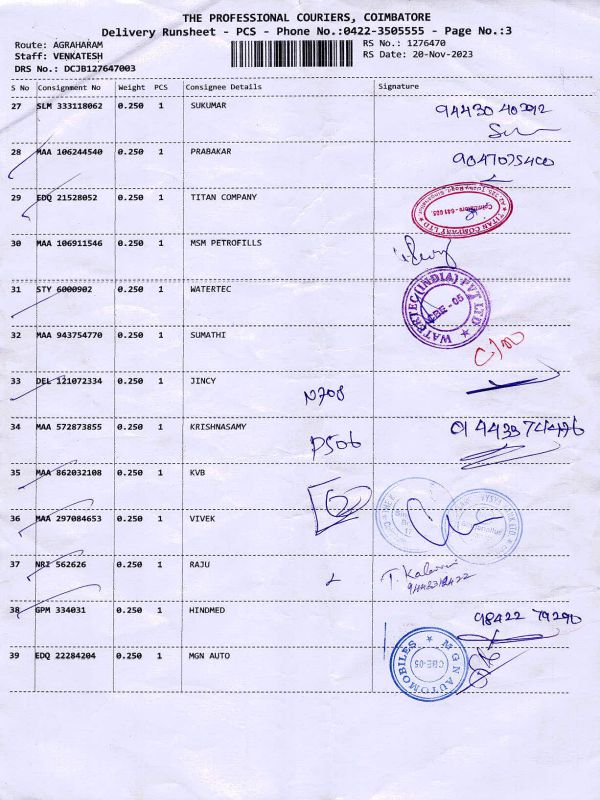 THE PROFESSIONAL COURIERS, COIMBATORE
Delivery Runsheet - PCS - Phone No.:0422-3505555 - Page No.:3
Route: AGRAHARAM
Staff: VENKATESH
DRS No.: DCJB127647003
RS No.: 1276470
RS Date: 20-Nov-2023
S No Consignment No Weight PCS Consignee Details Signature
27 SLM 333118062 0.250 1 SUKUMAR
28 MAA 106244540 0.250 1 PRABAKAR
29 EDQ 21528052 0.250 1 TITAN COMPANY
TITAN COMPANY LTD
30 MAA 106911546 0.250 1 MSM PETROFILLS
31 STY 6000902 0.250 1 WATERTEC
WATERTEC (INDIA) PVT LTD
CBE - 05
32 MAA 943754770 0.250 1 SUMATHI
33 DEL 121072334 0.250 1 JINCY
N708
34 MAA 572873855 0.250 1 KRISHNASAMY
P506
35 MAA 862032108 0.250 1 KVB
36 MAA 297084653 0.250 1 VIVEK
37 NRI 562626 0.250 1 RAJU
38 GPM 334031 0.250 1 HINDMED
98422 79290
39 EDQ 22284204 0.250 1 MGN AUTO
M G N AUTOMOBILES
CBE-05